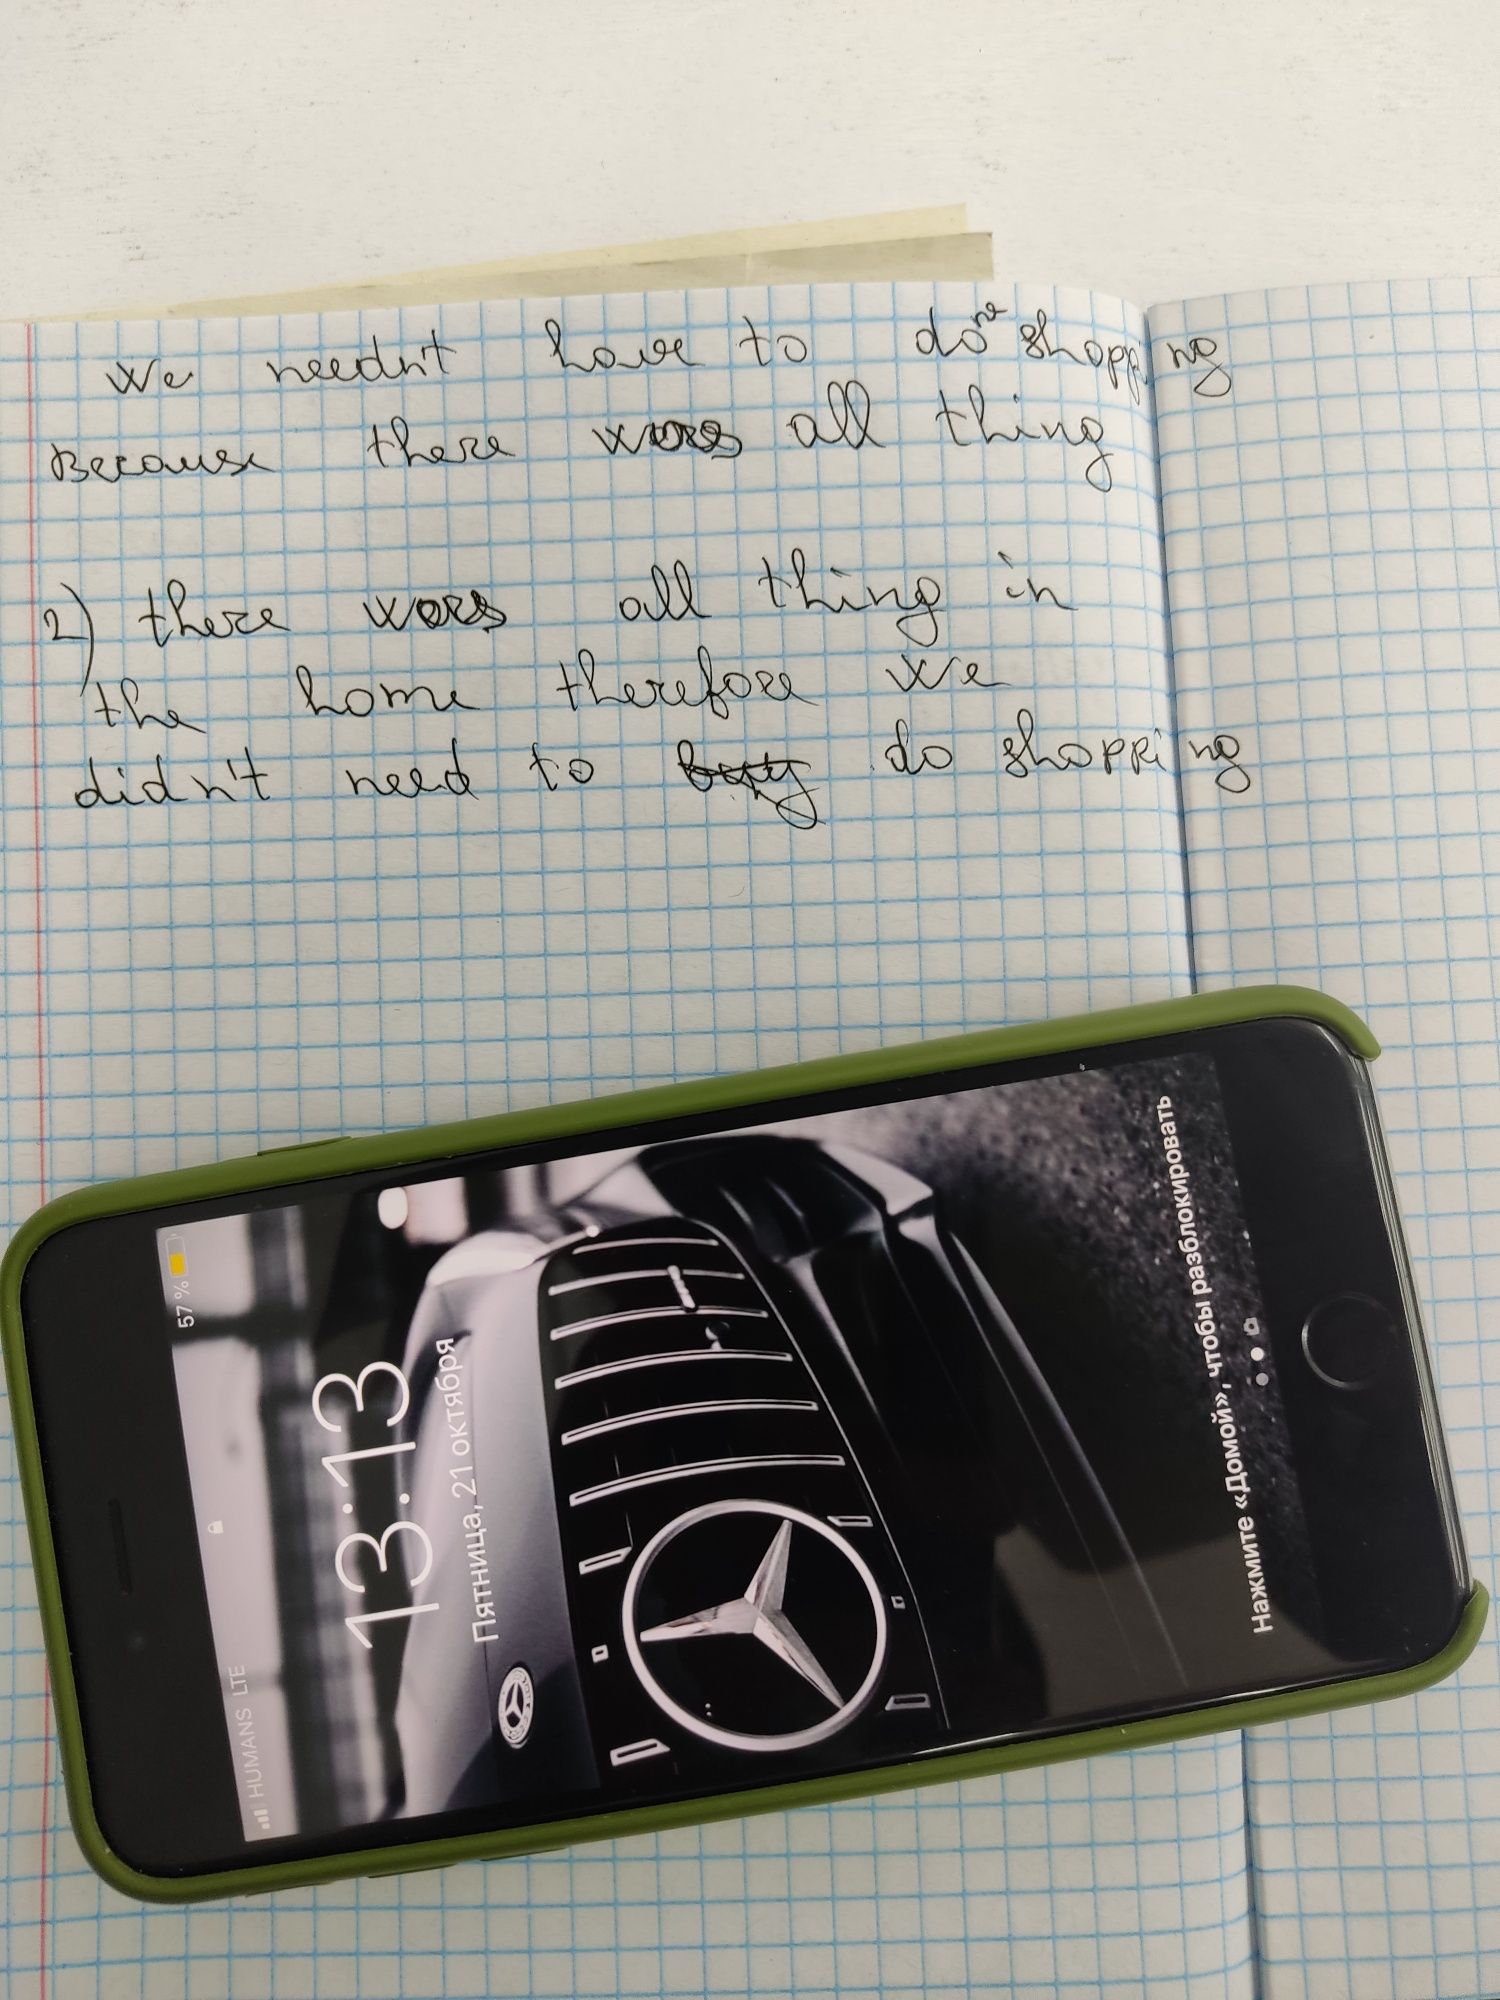 We needn't have to done shopping
Because there was all thing
2) there was all thing in
the home therefore we
didn't need to buy do shopping
HUMANS LTE
57 %
13:13
Пятница, 21 октября
Нажмите «Домой», чтобы разблокировать